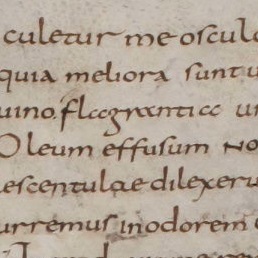 culetur me oscul
quia meliora sunt u
uino flagrantia un
Oleum effusum no
escentulae dilexeru
urremus in odorem